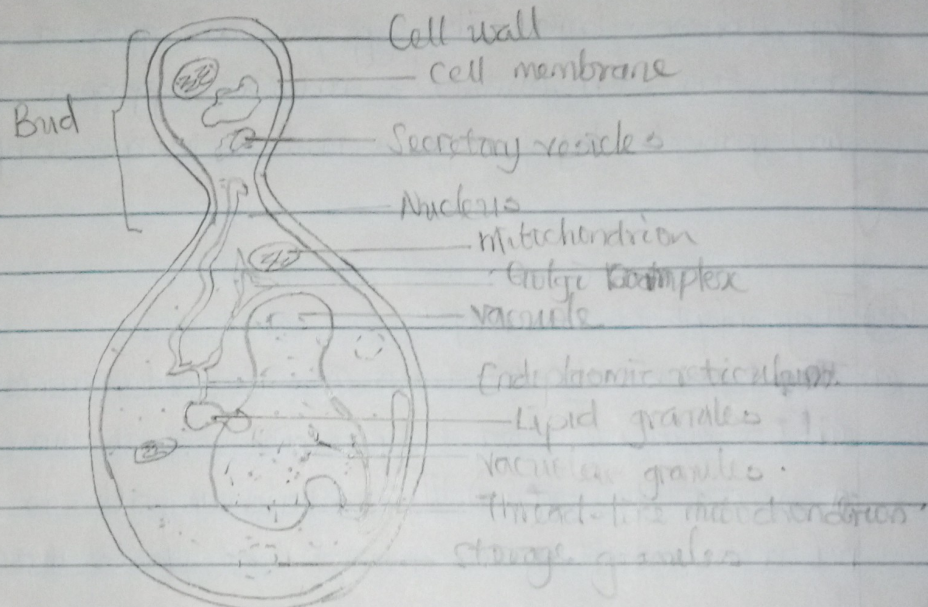 Cell wall
Cell membrane
Bud
Secretory vesicles
Nucleus
Mitochondrion
Golgi complex
Vacuole
Endoplasmic reticulum
Lipid granules
Vacuolar granules.
Thread-like mitochondrion
Storage granules